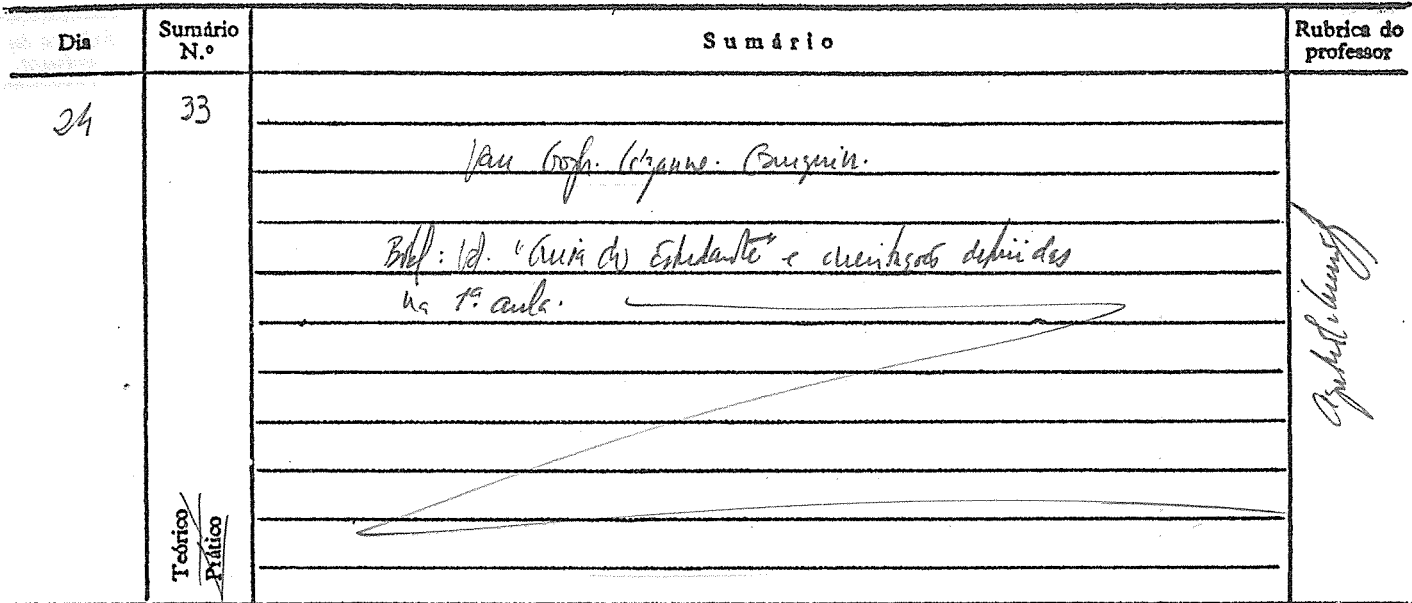 Dia
Sumário N.º
Sumário
Rubrica do professor
24
33
Van Gogh. Cézanne. Gauguin.
Bibl: Id. "Guia do Estudante" e orientações definidas
na 1ª aula.
Teórico
Prático